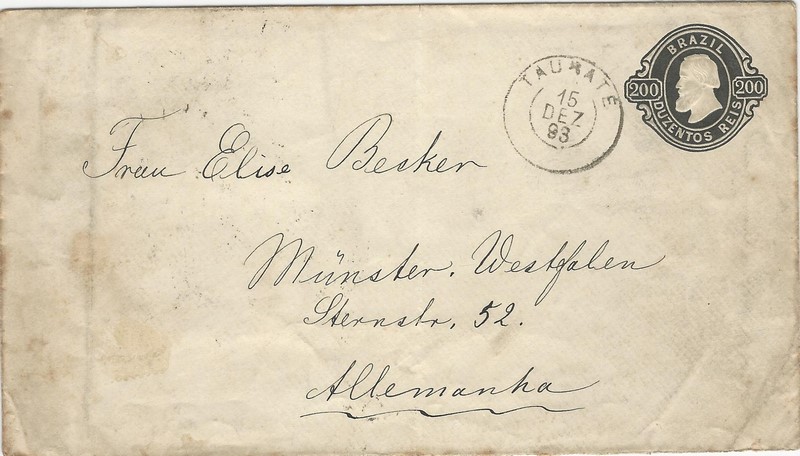 BRAZIL
200 200
DUZENTOS REIS
TAUBATÉ
15
DEZ
93
Frau Elise Becker
Münster. Westfalen
Sternstr. 52.
Allemanha